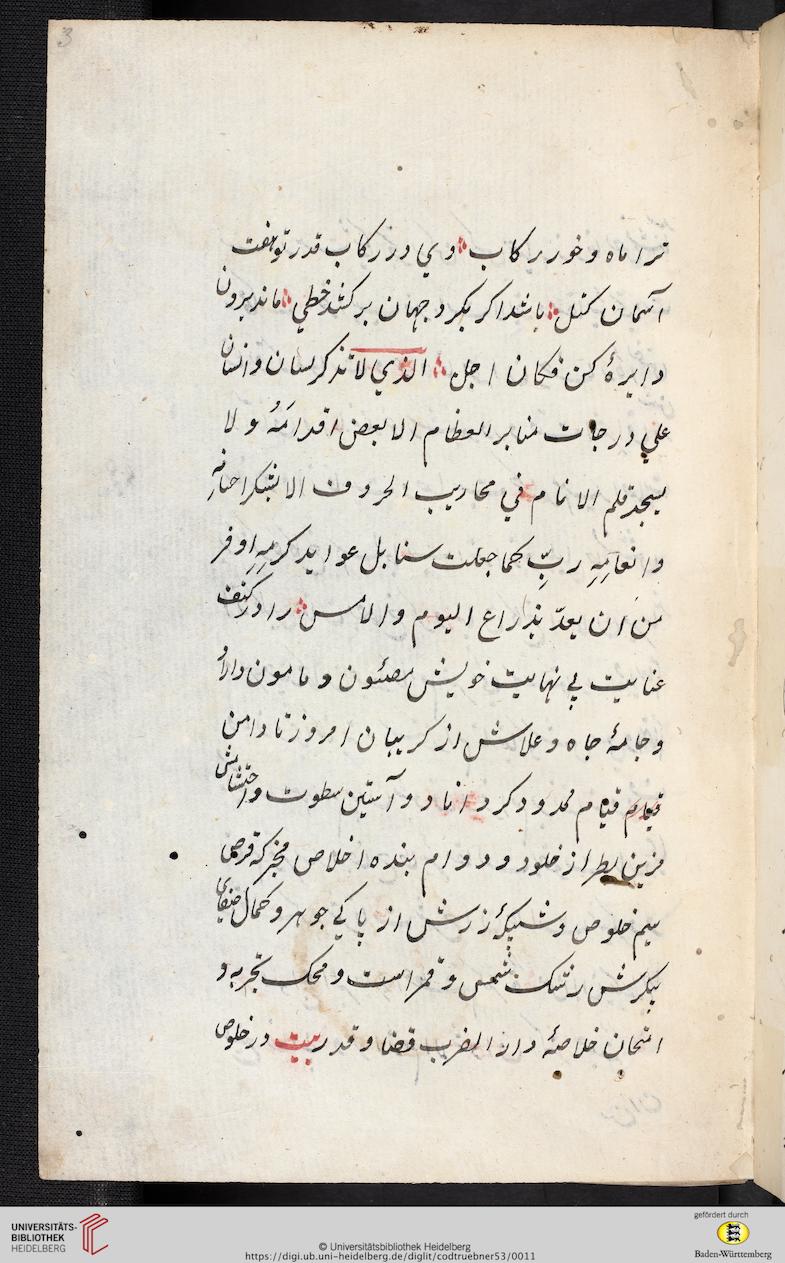 3
ترا ماه و خور رکاب ؞ وي در رکاب قدر تو هفت
آسمان کتل ؞ باشد اکر بکرد جهان برکشد خطي ؞ ماند برون
دایرۀ کن فکان اجل ؞ الذي لا تذکر لسان وانسان
علي درجات منابر العظام الا بعض اقدامَهُ ولا
یسجد قلم الانام في محاریب الحروف الا لشکر احسانِهِ
وانعامِهِ ربِّ کما جعلت سنابل عواید کرمِهِ اوفر
من ان یعدّ بذراع الیوم والامس ؞ را در کنف
عنایت بي نهایت خویش مصئون و مامون دارد
و جامۀ جاه و علاش از کریبان امروز تا دامن
قیام قیام ممدود کرداناد و آستین سطوت و احتشامش
مزین بطراز خلود و دوام بنده اخلاص مخبر که قرص
سیم خلوص و شبیکۀ زرش از پاکي جوهر و کمال صفای
پیکرش رشک شمس و قمر است و محک تجربه و
امتحان خلاصۀ دار الضرب قضا و قدر بیت در خلوص
UNIVERSITÄTS-
BIBLIOTHEK
HEIDELBERG
© Universitätsbibliothek Heidelberg
https://digi.ub.uni-heidelberg.de/diglit/codtruebner53/0011
gefördert durch
Baden-Württemberg